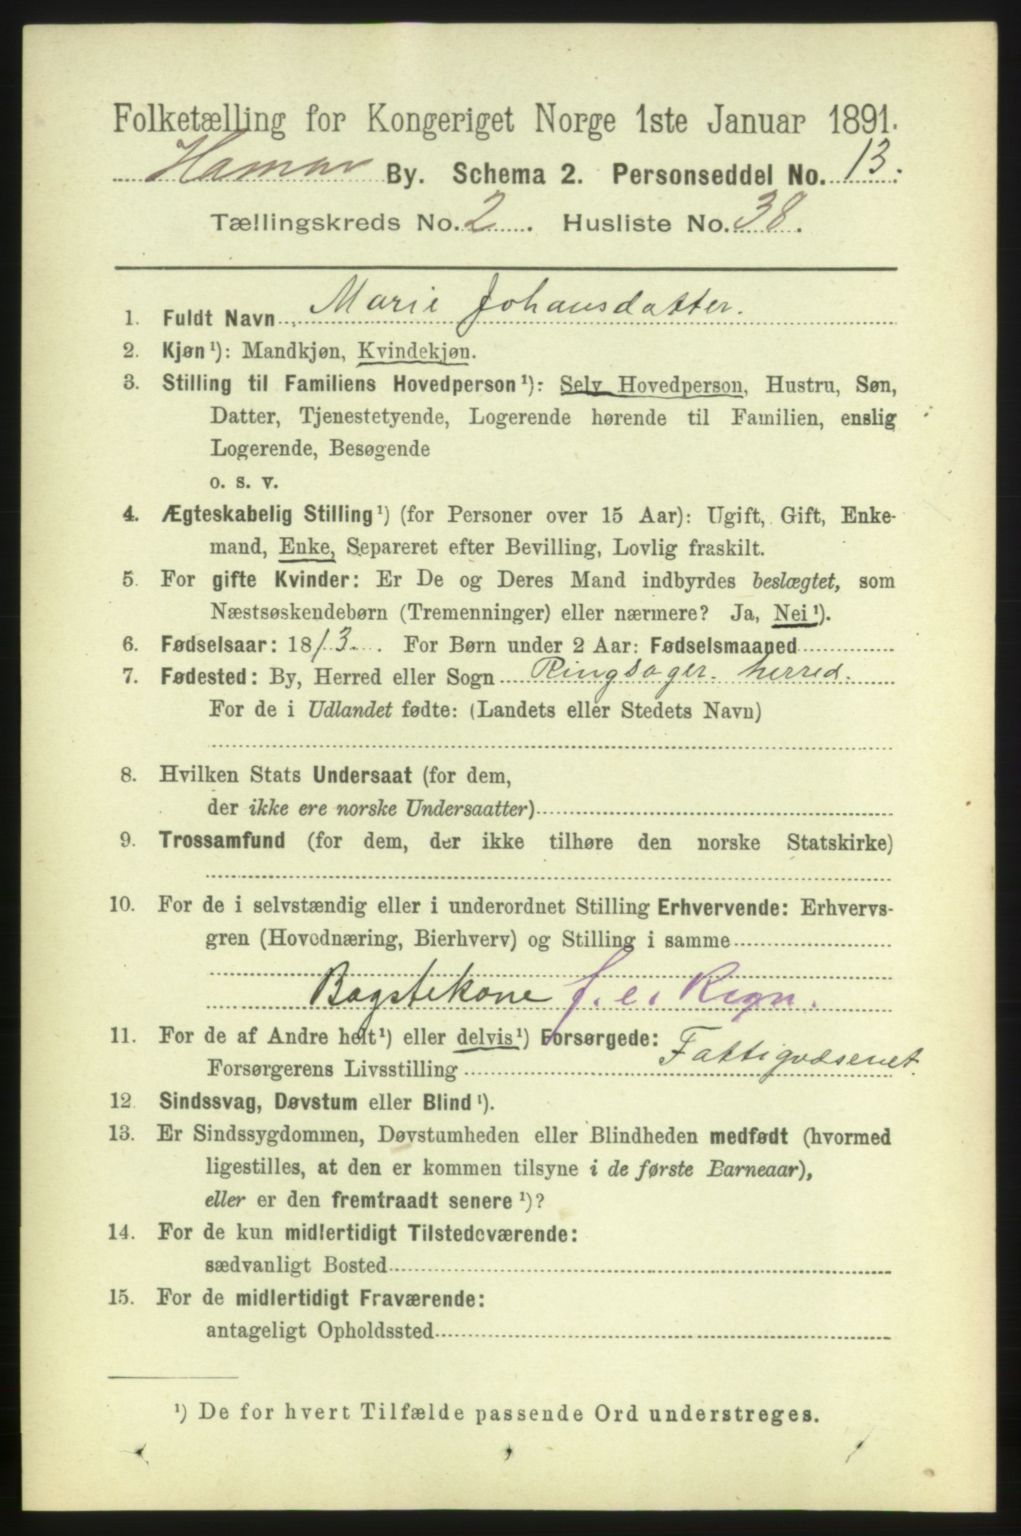 Folketælling for Kongeriget Norge 1ste Januar 1891.
Hamar By. Schema 2. Personseddel No. 13.
Tællingskreds No. 2. Husliste No. 38.
1. Fuldt Navn Marie Johansdatter.
2. Kjøn¹): Mandkjøn, Kvindekjøn.
3. Stilling til Familiens Hovedperson¹): Selv Hovedperson, Hustru, Søn,
Datter, Tjenestetyende, Logerende hørende til Familien, enslig
Logerende, Besøgende
o. s. v.
4. Ægteskabelig Stilling¹) (for Personer over 15 Aar): Ugift, Gift, Enke-
mand, Enke, Separeret efter Bevilling, Lovlig fraskilt.
5. For gifte Kvinder: Er De og Deres Mand indbyrdes beslægtet, som
Næstsøskendebørn (Tremenninger) eller nærmere? Ja, Nei¹).
6. Fødselsaar: 1813. For Børn under 2 Aar: Fødselsmaaned
7. Fødested: By, Herred eller Sogn Ringsager herred.
For de i Udlandet fødte: (Landets eller Stedets Navn)
8. Hvilken Stats Undersaat (for dem,
der ikke ere norske Undersaatter)
9. Trossamfund (for dem, der ikke tilhøre den norske Statskirke)
10. For de i selvstændig eller i underordnet Stilling Erhvervende: Erhvervs-
gren (Hovednæring, Bierhverv) og Stilling i samme
Bagstekone f. e. Regn.
11. For de af Andre helt¹) eller delvis¹) Forsørgede:
Forsørgerens Livsstilling Fattigvæsenet.
12. Sindssvag, Døvstum eller Blind¹).
13. Er Sindssygdommen, Døvstumheden eller Blindheden medfødt (hvormed
ligestilles, at den er kommen tilsyne i de første Barneaar),
eller er den fremtraadt senere¹)?
14. For de kun midlertidigt Tilstedeværende:
sædvanligt Bosted
15. For de midlertidigt Fraværende:
antageligt Opholdssted
¹) De for hvert Tilfælde passende Ord understreges.